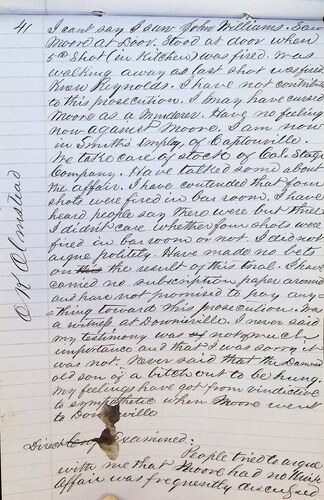 41
I cant say I saw John Williams. Saw
Moore at Door. Stood at door when
5th Shot (in Kitchen) was fired. Was
walking away as last shot was fired
Know Reynolds. I have not contributed
to this prosecution. I may have cursed
Moore as a Murderer. Have no feeling
now against Moore. I am now
in Smiths Employ of Camptonville.
We take care of stock of Cal. Stage
Company. Have talked some about
the affair. I have contended that four
shots were fired in bar room. I have
heard people say there were but three
I didn't care whether four shots were
fired in bar room or not. I did not
argue politely. Have made no bets
on the result of this trial. I have
carried no subscription paper around
and have not promised to pay any
thing toward this prosecution. Was
a witness at Downieville. I never said
my testimony was of much
importance and that I was sorry it
was not. Never said that the Damned
old son of a bitch out to be hung.
My feelings have got from vindictive
to sympathetic when Moore went
to Downieville
Direct Examined:
People tried to argue
with me that Moore had no Knife
Affair was frequently discussed
O W Olmstead